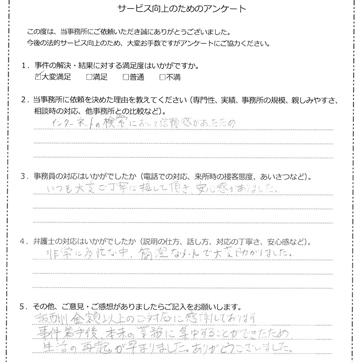 サービス向上のためのアンケート
この度は、当事務所にご依頼いただき誠にありがとうございました。
今後の法的サービス向上のため、大変お手数ですがアンケートにご協力ください。
1．事件の解決・結果に対する満足度はいかがですか。
☑大変満足　□満足　□普通　□不満
2．当事務所に依頼を決めた理由を教えてください（専門性、実績、事務所の規模、親しみやすさ、
相談時の対応、他事務所との比較など）。
インターネットの検索において信頼感があったため
3．事務員の対応はいかがでしたか（電話での対応、来所時の接客態度、あいさつなど）。
いつも大変ご丁寧に接して頂き、安心感がありました。
4．弁護士の対応はいかがでしたか（説明の仕方、話し方、対応の丁寧さ、安心感など）。
非常に多忙な中、簡潔なメールで大変助かりました。
5．その他、ご意見・ご感想がありましたらご記入をお願いします。
報酬金額以上のご対応に感謝しております
事件着手後、本来の業務に集中することができたため
生活の再起が早まりました。ありがとうございました。